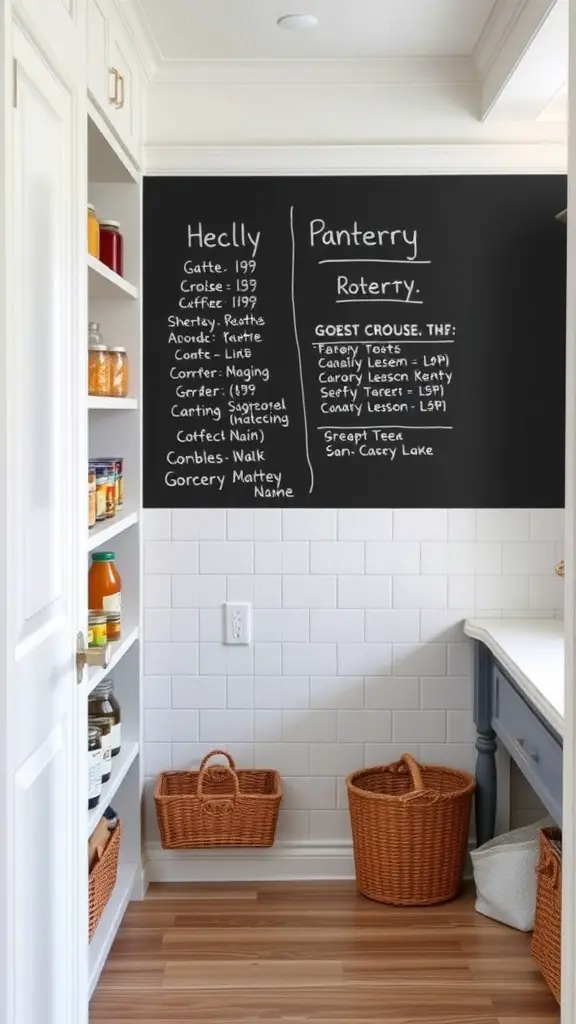 Heclly
Gatte. 199
Croise = 199
Catfee: 1199
Shertay. Reaths
Aoords: Teatte
Coate - Linb
Comfer: Maging
Grrder: (199
Cantting Sagrorad
(natecing
Coffect Nain)
Combles - Walk
Gorcery Mattey
Name
Panterry
Roterty.
GOEST CROUSE. THF:
Fatory Toats
Canailly Lesern = LSP)
Carory Lesson Kenty
Seefty Torert = LSP)
Canaty Lesson - LSP)
Sreapt Teea
San- Cascy Lake